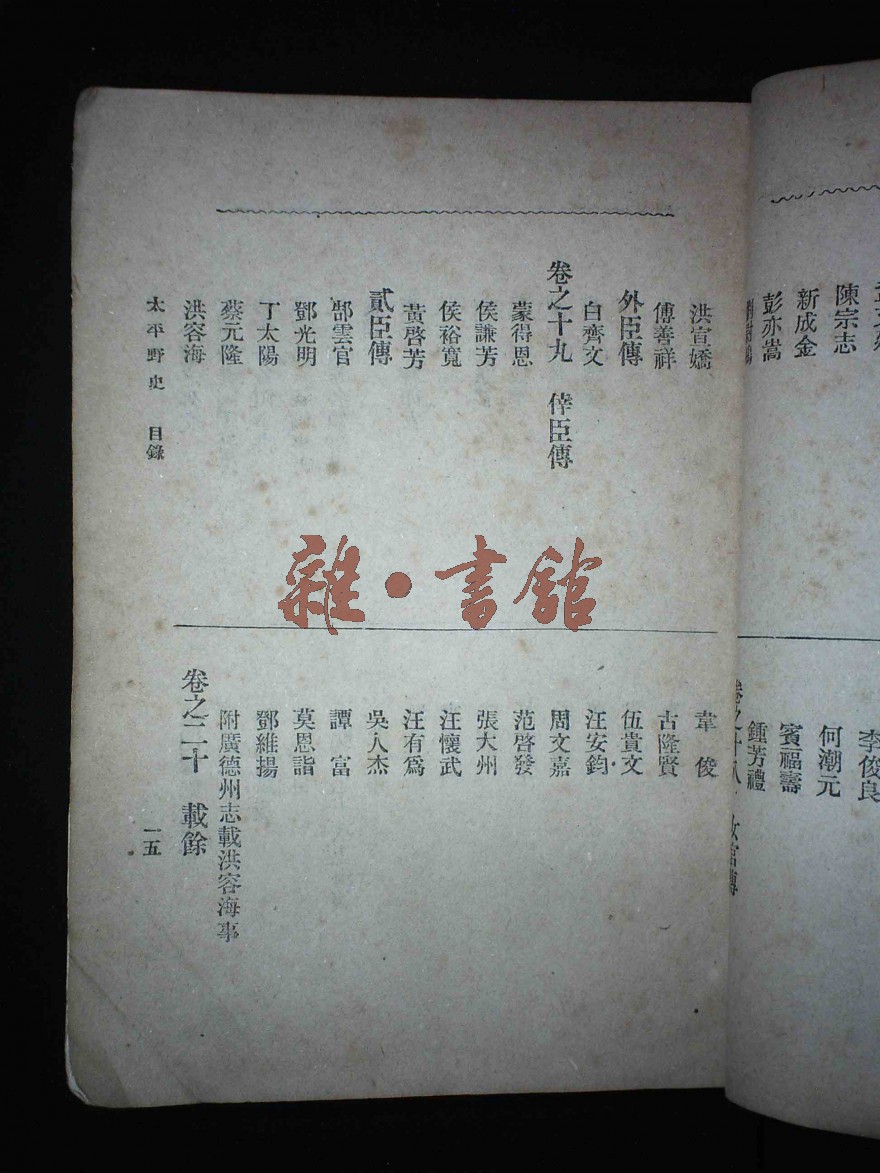 陳宗志
新成金
彭亦嵩
李俊良
何潮元
賓福壽
鍾芳禮
洪宣嬌
傅善祥
外臣傳
白齊文
卷之十九 倖臣傳
蒙得恩
侯謙芳
侯裕寬
黃啓芳
貳臣傳
郜雲官
鄧光明
丁太陽
蔡元隆
洪容海
韋 俊
古隆賢
伍貴文
汪安鈞
周文嘉
范啓發
張大州
汪懷武
汪有為
吳人杰
譚 富
莫恩詣
鄧維揚
附廣德州志載洪容海事
卷之二十 載餘
太平野史 目錄
一五
雜・書館